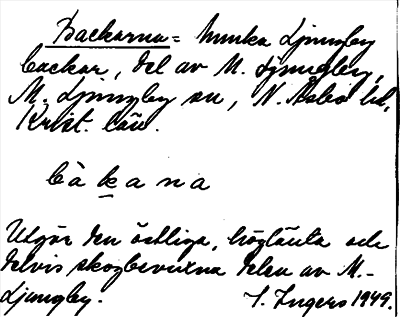 Backarna = Munka Ljungby
backar, del av M. Ljungby,
M. Ljungby sn, N. Åsbo hd,
Krist. län.
bàkana
Utgör den östliga, höglänta och
delvis skogbevuxna delen av M.-
Ljungby. I. Ingers 1949.